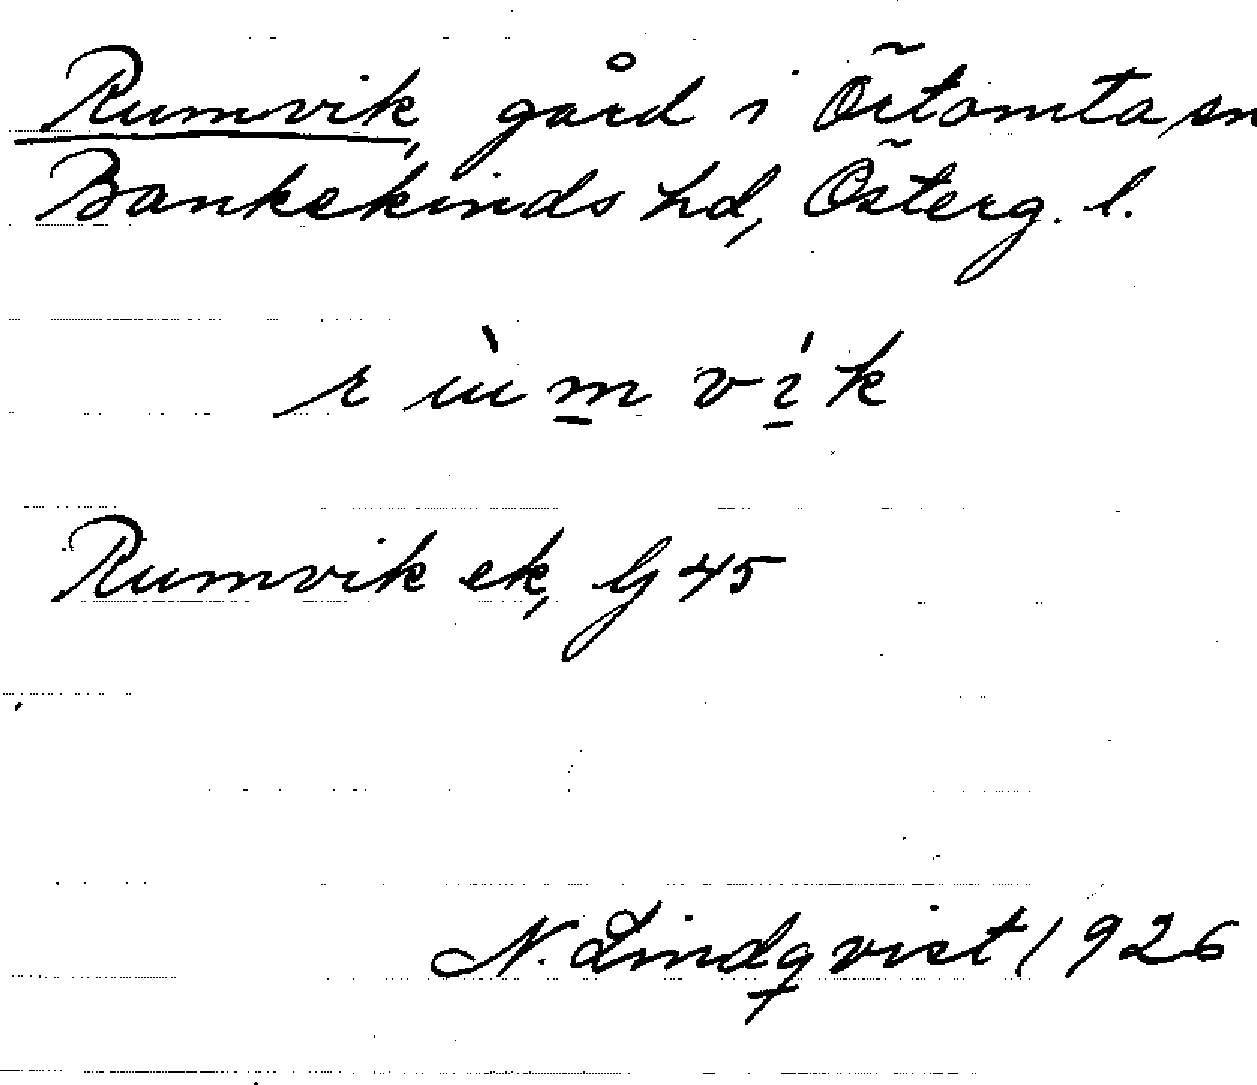 Rumvik, gård i Örtomta sn
Bankekinds hd, Österg. l.
rùmvík
Rumvik ek, G 45
N. Lindqvist 1926